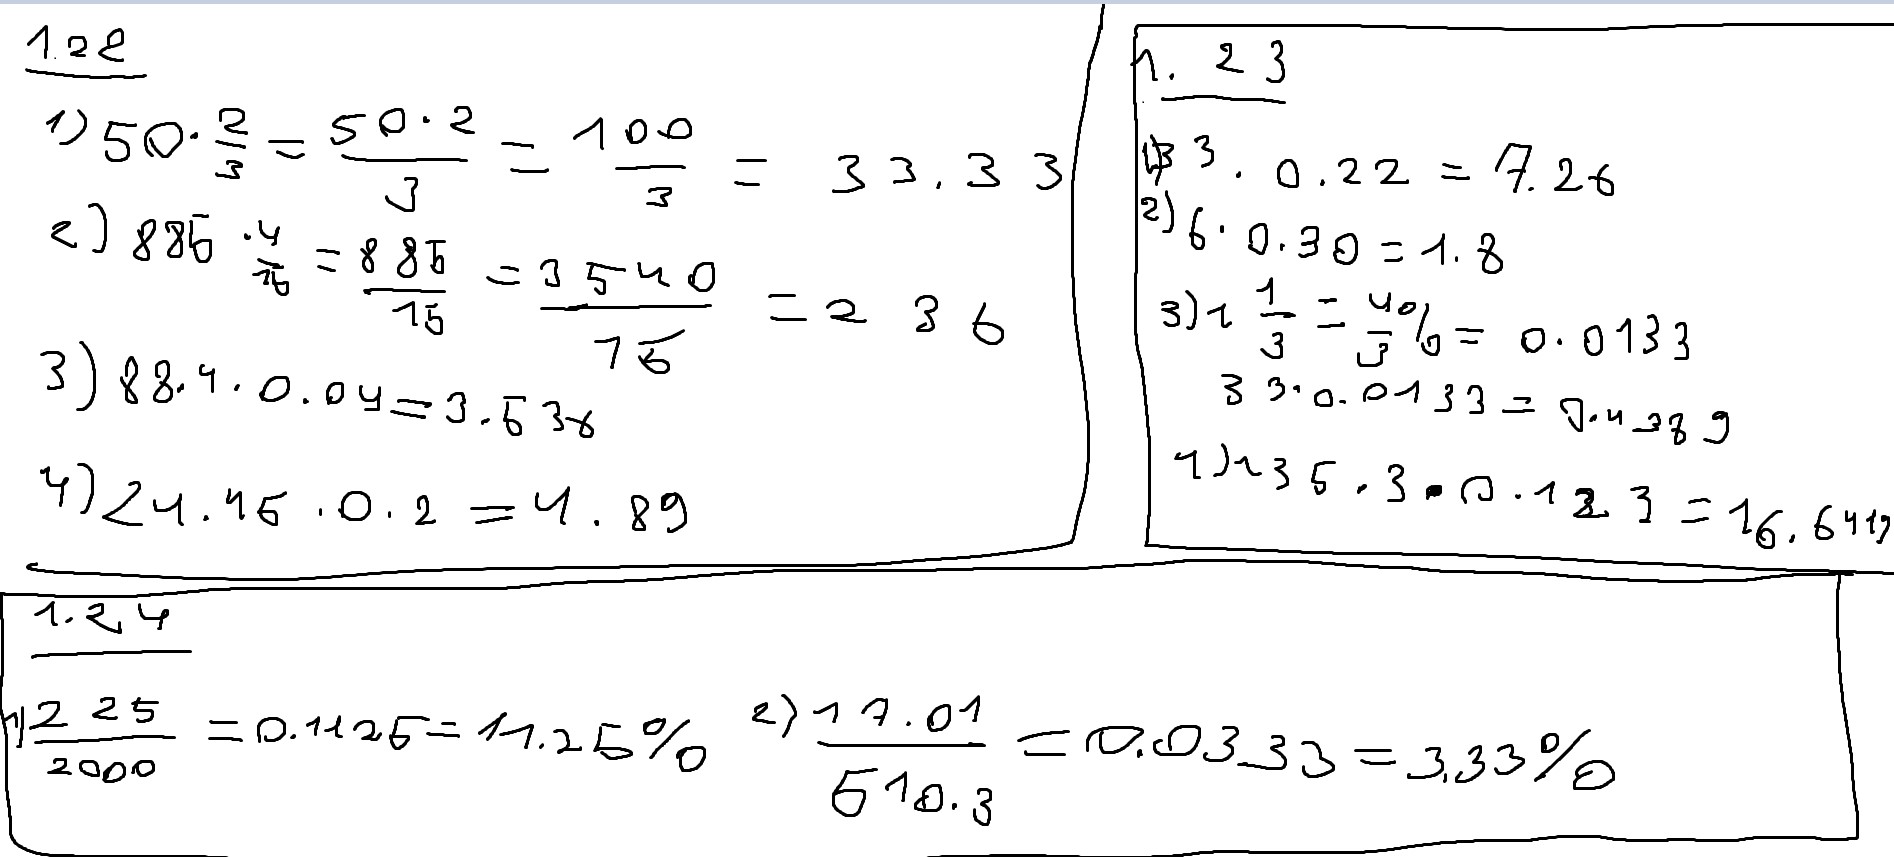 1.22
1) 50 · 2/3 = 50 · 2/3 = 100/3 = 33.33
2) 885 · 4/15 = 885/15 = 3540/15 = 236
3) 88.4 · 0.04 = 3.536
4) 24.45 · 0.2 = 4.89
1. 23
1) 33 · 0.22 = 7.26
2) 6 · 0.30 = 1.8
3) 1 1/3 = 4/3 % = 0.0133
33 · 0.0133 = 0.4389
4) 135.3 · 0.123 = 16.6419
1.24
1) 225/2000 = 0.1125 = 11.25%
2) 17.01/510.3 = 0.0333 = 3.33%